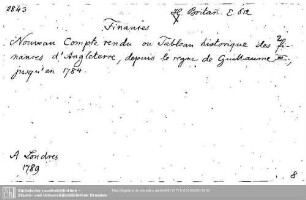 2843
H Britan. C. 612
Finanses
Nouveau Compte rendu ou Tableau historique des fi-
nances d'Angleterre, depuis le regne de Guillaume III,
jusqu'en 1784.
A Londres
1789
8
Sächsische Landesbibliothek -
Staats- und Universitätsbibliothek Dresden